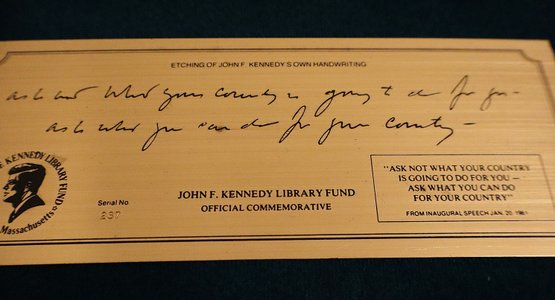 ETCHING OF JOHN F. KENNEDY'S OWN HANDWRITING
ask not what your country is going to do for you –
ask what you can do for your country –
F. KENNEDY LIBRARY FUND
Massachusetts
Serial No.
237
JOHN F. KENNEDY LIBRARY FUND
OFFICIAL COMMEMORATIVE
"ASK NOT WHAT YOUR COUNTRY
IS GOING TO DO FOR YOU —
ASK WHAT YOU CAN DO
FOR YOUR COUNTRY"
FROM INAUGURAL SPEECH JAN. 20, 1961